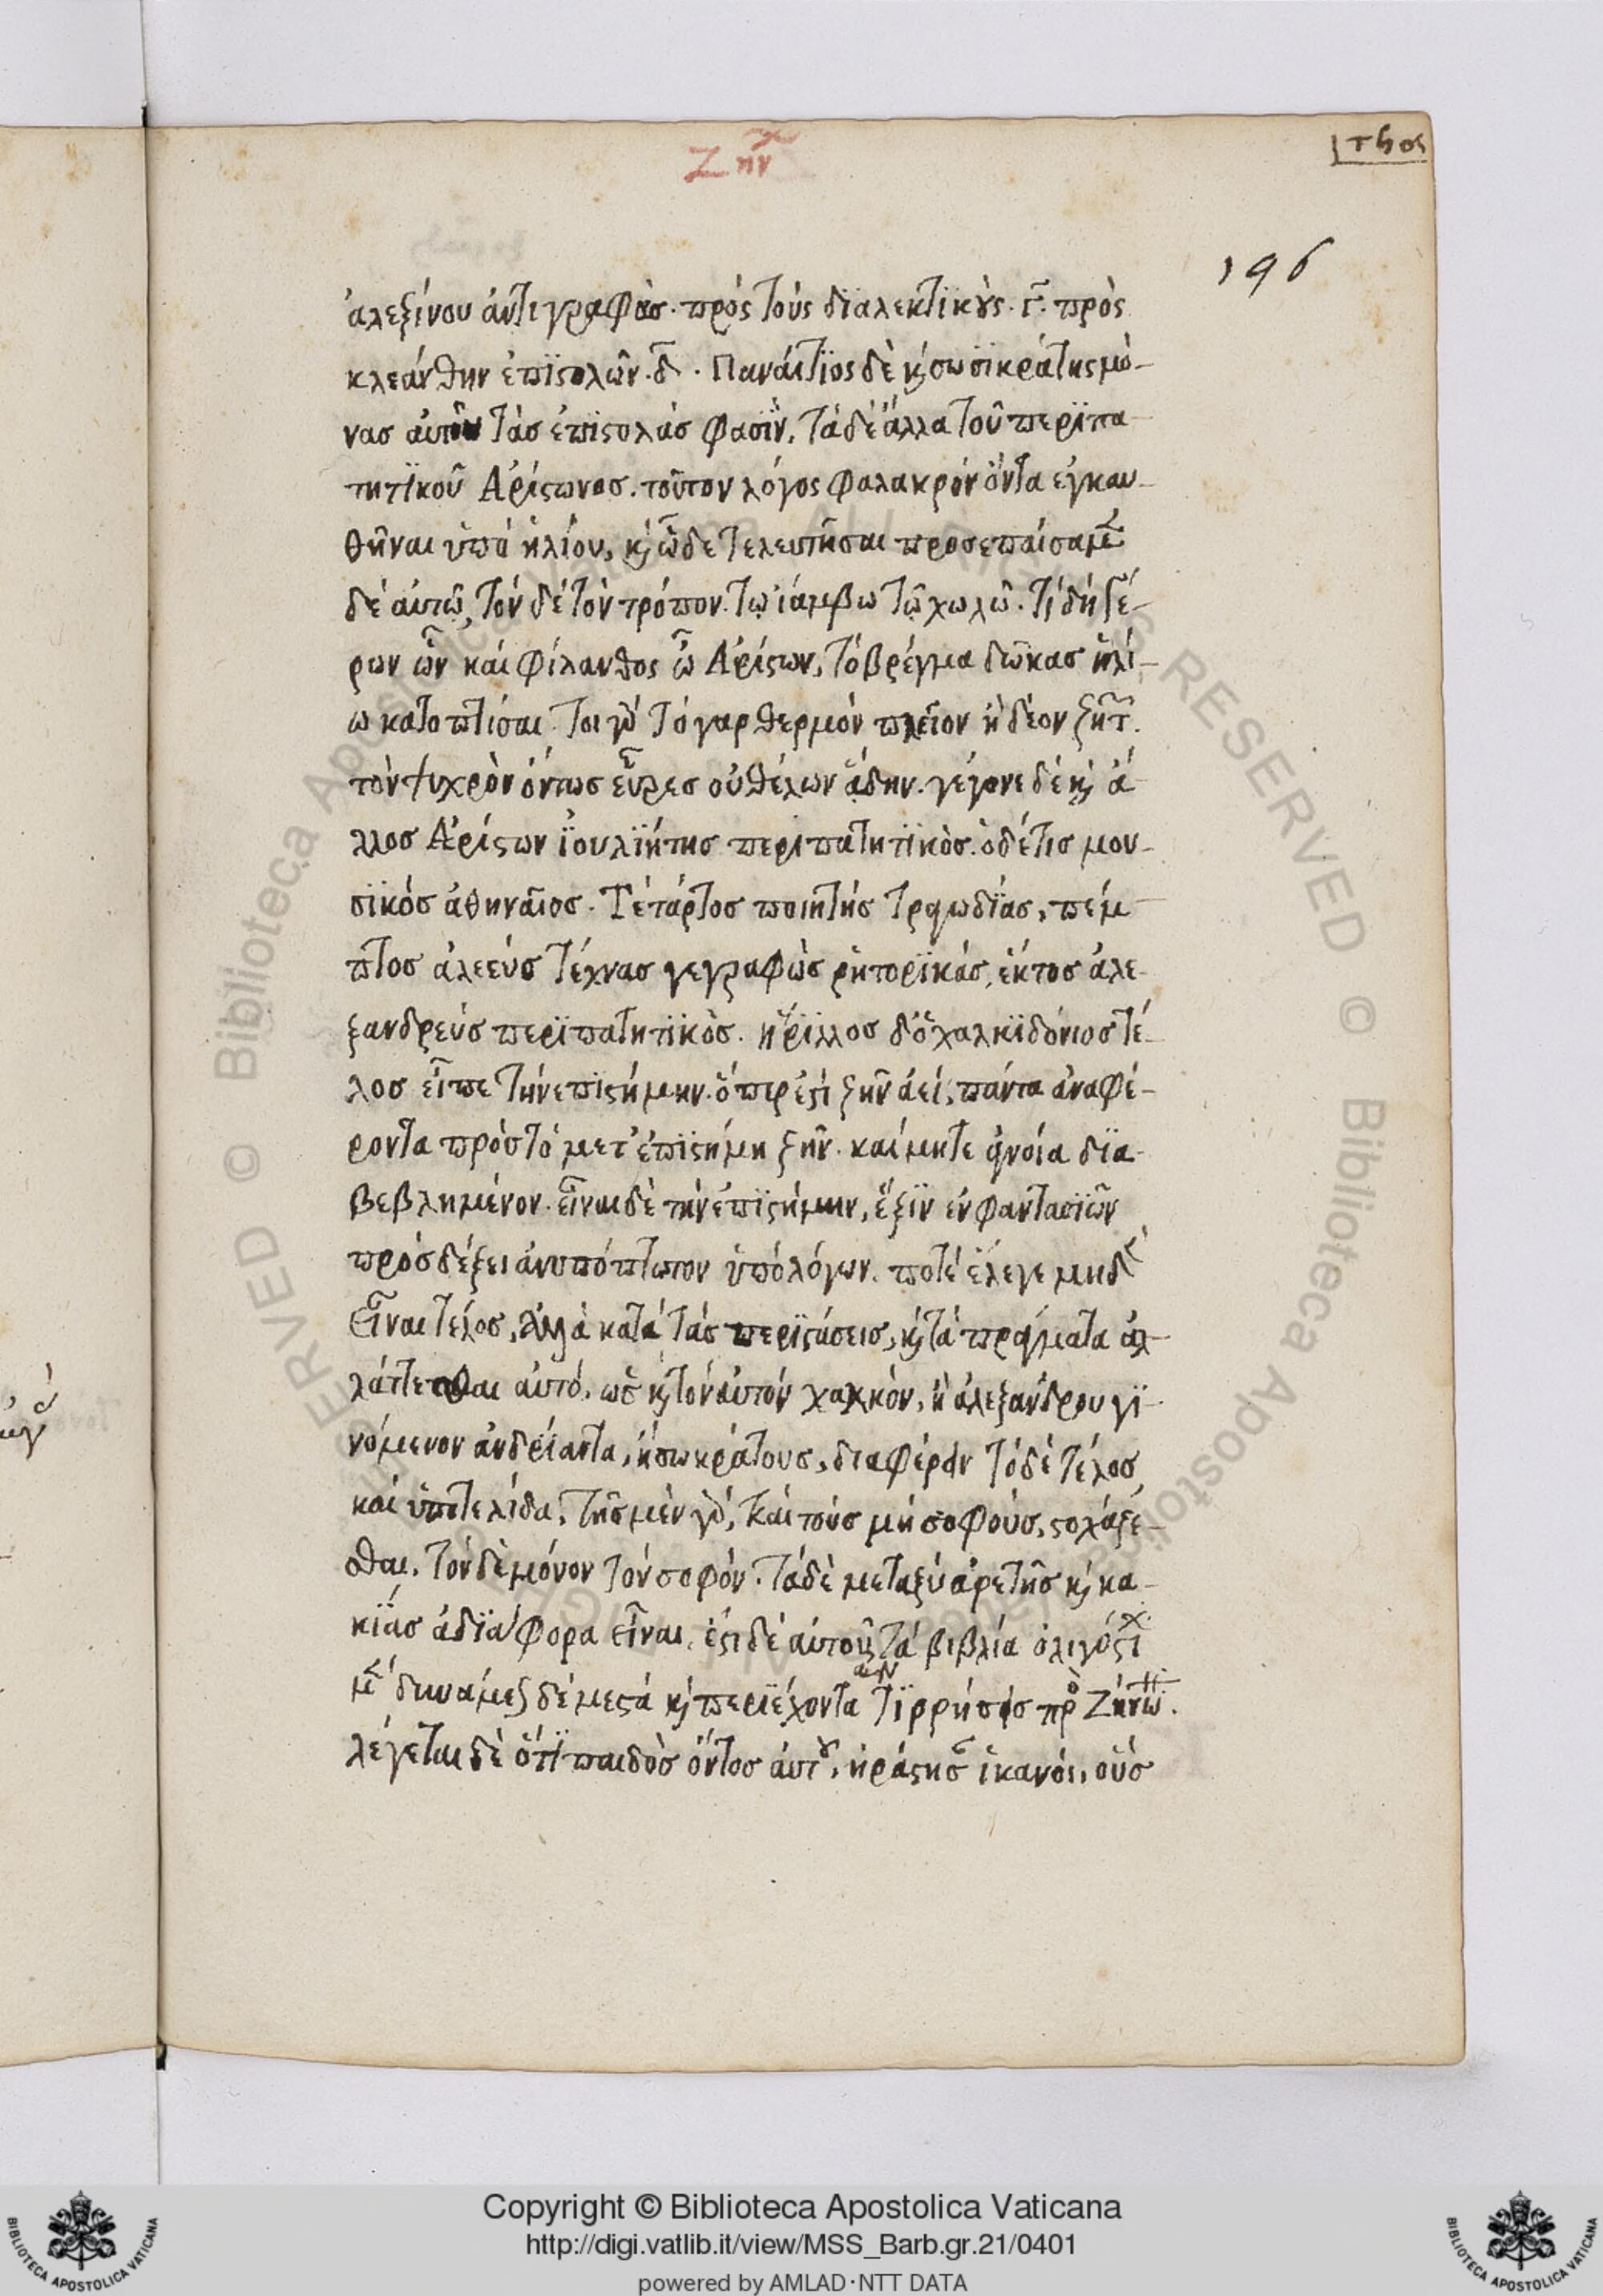 Ζην
196
ἀλεξίνου ἀντιγραφὰσ. πρὸς τοὺς διαλεκτικοὺς. γ̄. πρὸς
κλεάνθην ἐπιστολῶν. δ̄. Παναίτιος δὲ κ͵ σωσικράτης μό-
νασ αὐτοῦ τὰσ ἐπιστολάσ φασϊν, τὰ δὲ ἄλλα τοῦ περϊπα-
τητϊκοῦ Ἀρίστωνοσ. τοῦτον λόγος φαλακρόν ὄντα ἐγκαυ-
θῆναι ὑπὸ ἡλίου, κ͵ ὧδε τελευτῆσαι προσεπαίσαμ
δὲ αὐτῶ, τόν δέ τὸν τρόπον. τῶ ἰάμβω τῶ χωλῶ. τί δὴ γέ-
ρων ὢν καί φίλανθος ὦ Ἀρίστων, τὸ βρέγμα δῶκασ ἡλί-
ω κατοπτίσαι. τοι γὰρ τό γαρ θερμὸν πλεῖον ἢ δέον ζητ.
τὸν ψυχρὸν ὄντωσ εὗρεσ οὐ θέλων ἅδην. γέγονε δέ κ͵ ἄ-
λλοσ Ἀρίστων ἰουλϊήτησ περιπατητϊκὸσ. ὁ δέ τισ μου-
σϊκόσ ἀθηναῖοσ. Τέταρτοσ ποιητήσ τραγωδϊάσ, πέμ-
πτοσ ἀλεεύσ τέχνασ γεγραφὼσ ρητορϊκάσ, ἕκτοσ ἀλε-
ξανδρεύσ περϊπατητϊκὸσ. ἥρϊλλοσ δ' ὁ χαλκϊδόνιοσ τέ-
λοσ εἶπε τήν επϊστήμην. ὅπερ ἐστί ζῆν ἀεί, πάντα ἀναφέ-
ροντα πρόσ τό μετ' ἐπϊστήμη ζῆν. καί μητε ἀγνοία δϊα-
βεβλημένον. εἶναι δὲ τήν ἐπϊστήμην, ἕξϊν ἐν φαντασϊῶν
πρόσδέξει ἀνυπόπτωτον ὑπό λόγων. ποτέ ἔλεγε μηδὲ
Εἶναι τέλοσ, ἀλλὰ κατὰ τάσ περϊστάσεισ, κ͵ τὰ πράγματα ἀλ-
λάττεσθαι αὐτό, ὡσ κ͵ τὸν αὐτόν χαλκὸν, ἢ ἀλεξάνδρου γϊ-
νόμενον ἀνδρϊάντα, ἢ σωκράτουσ, διαφέρειν τό δέ τέλοσ
καί ὑποτελίδα, τῆσ μὲν γὰρ, καί τούσ μή σοφούσ, στοχάζε-
σθαι. τὸν δὲ μόνον τόν σοφόν. τὰ δὲ μεταξὺ ἀρετῆσ κ͵ κα-
κϊάσ ἀδϊάφορα εἶναι. ἔστι δέ αὐτοῦ τὰ βιβλία ὀλιγόστι
μ δυνάμεωσ δέ μεστά κ͵ περϊέχοντα ἀντϊρρήσεισ πρὸ Ζήνω.
λέγεται δὲ ὅτϊ παιδὸσ ὄντοσ αὐτοῦ, ἠράστησ ἱκανόι, οὓσ
Copyright © Biblioteca Apostolica Vaticana
http://digi.vatlib.it/view/MSS_Barb.gr.21/0401
powered by AMLAD·NTT DATA